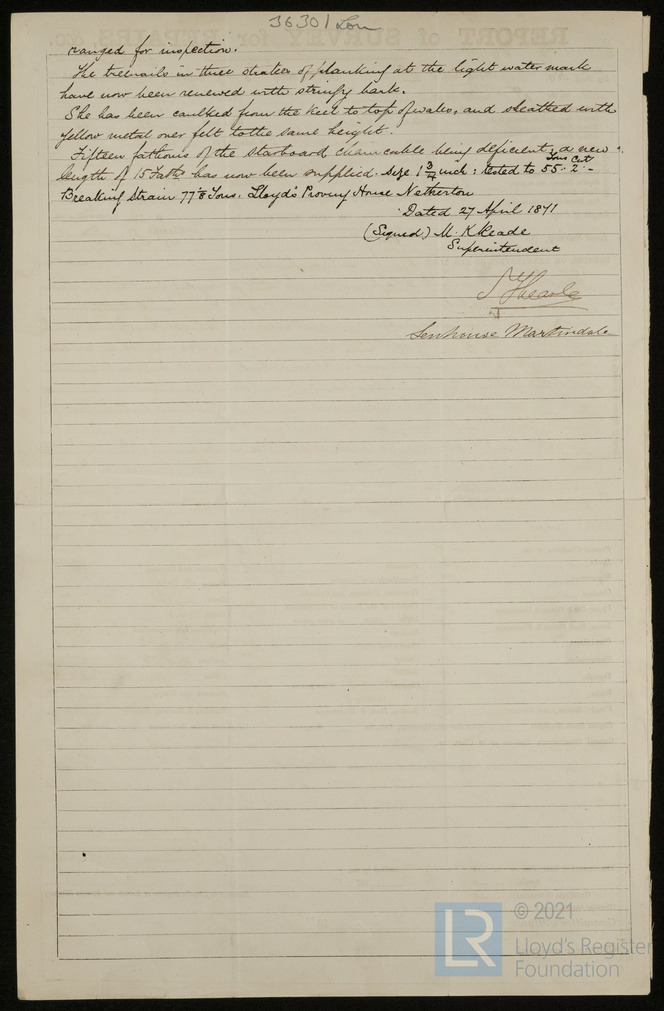 36301 Lon
ranged for inspection.
The treenails in three strakes of planking at the light water mark
have now been renewed with stringy bark.
She has been caulked from the keel to top of wales, and sheathed with
yellow metal over felt to the same height.
Fifteen fathoms of the starboard chain cable being deficient, a new
length of 15 Faths has now been supplied. Size 1 3/4 inch: tested to 55 Tons 2 Cwt -
Breaking Strain 77 1/8 Tons. Lloyd's Proving House Netherton
Dated 27 April 1871
(Signed) M. K. Meade
Superintendent
Senhouse Martindale
© 2021
LR
Lloyd's Register
Foundation